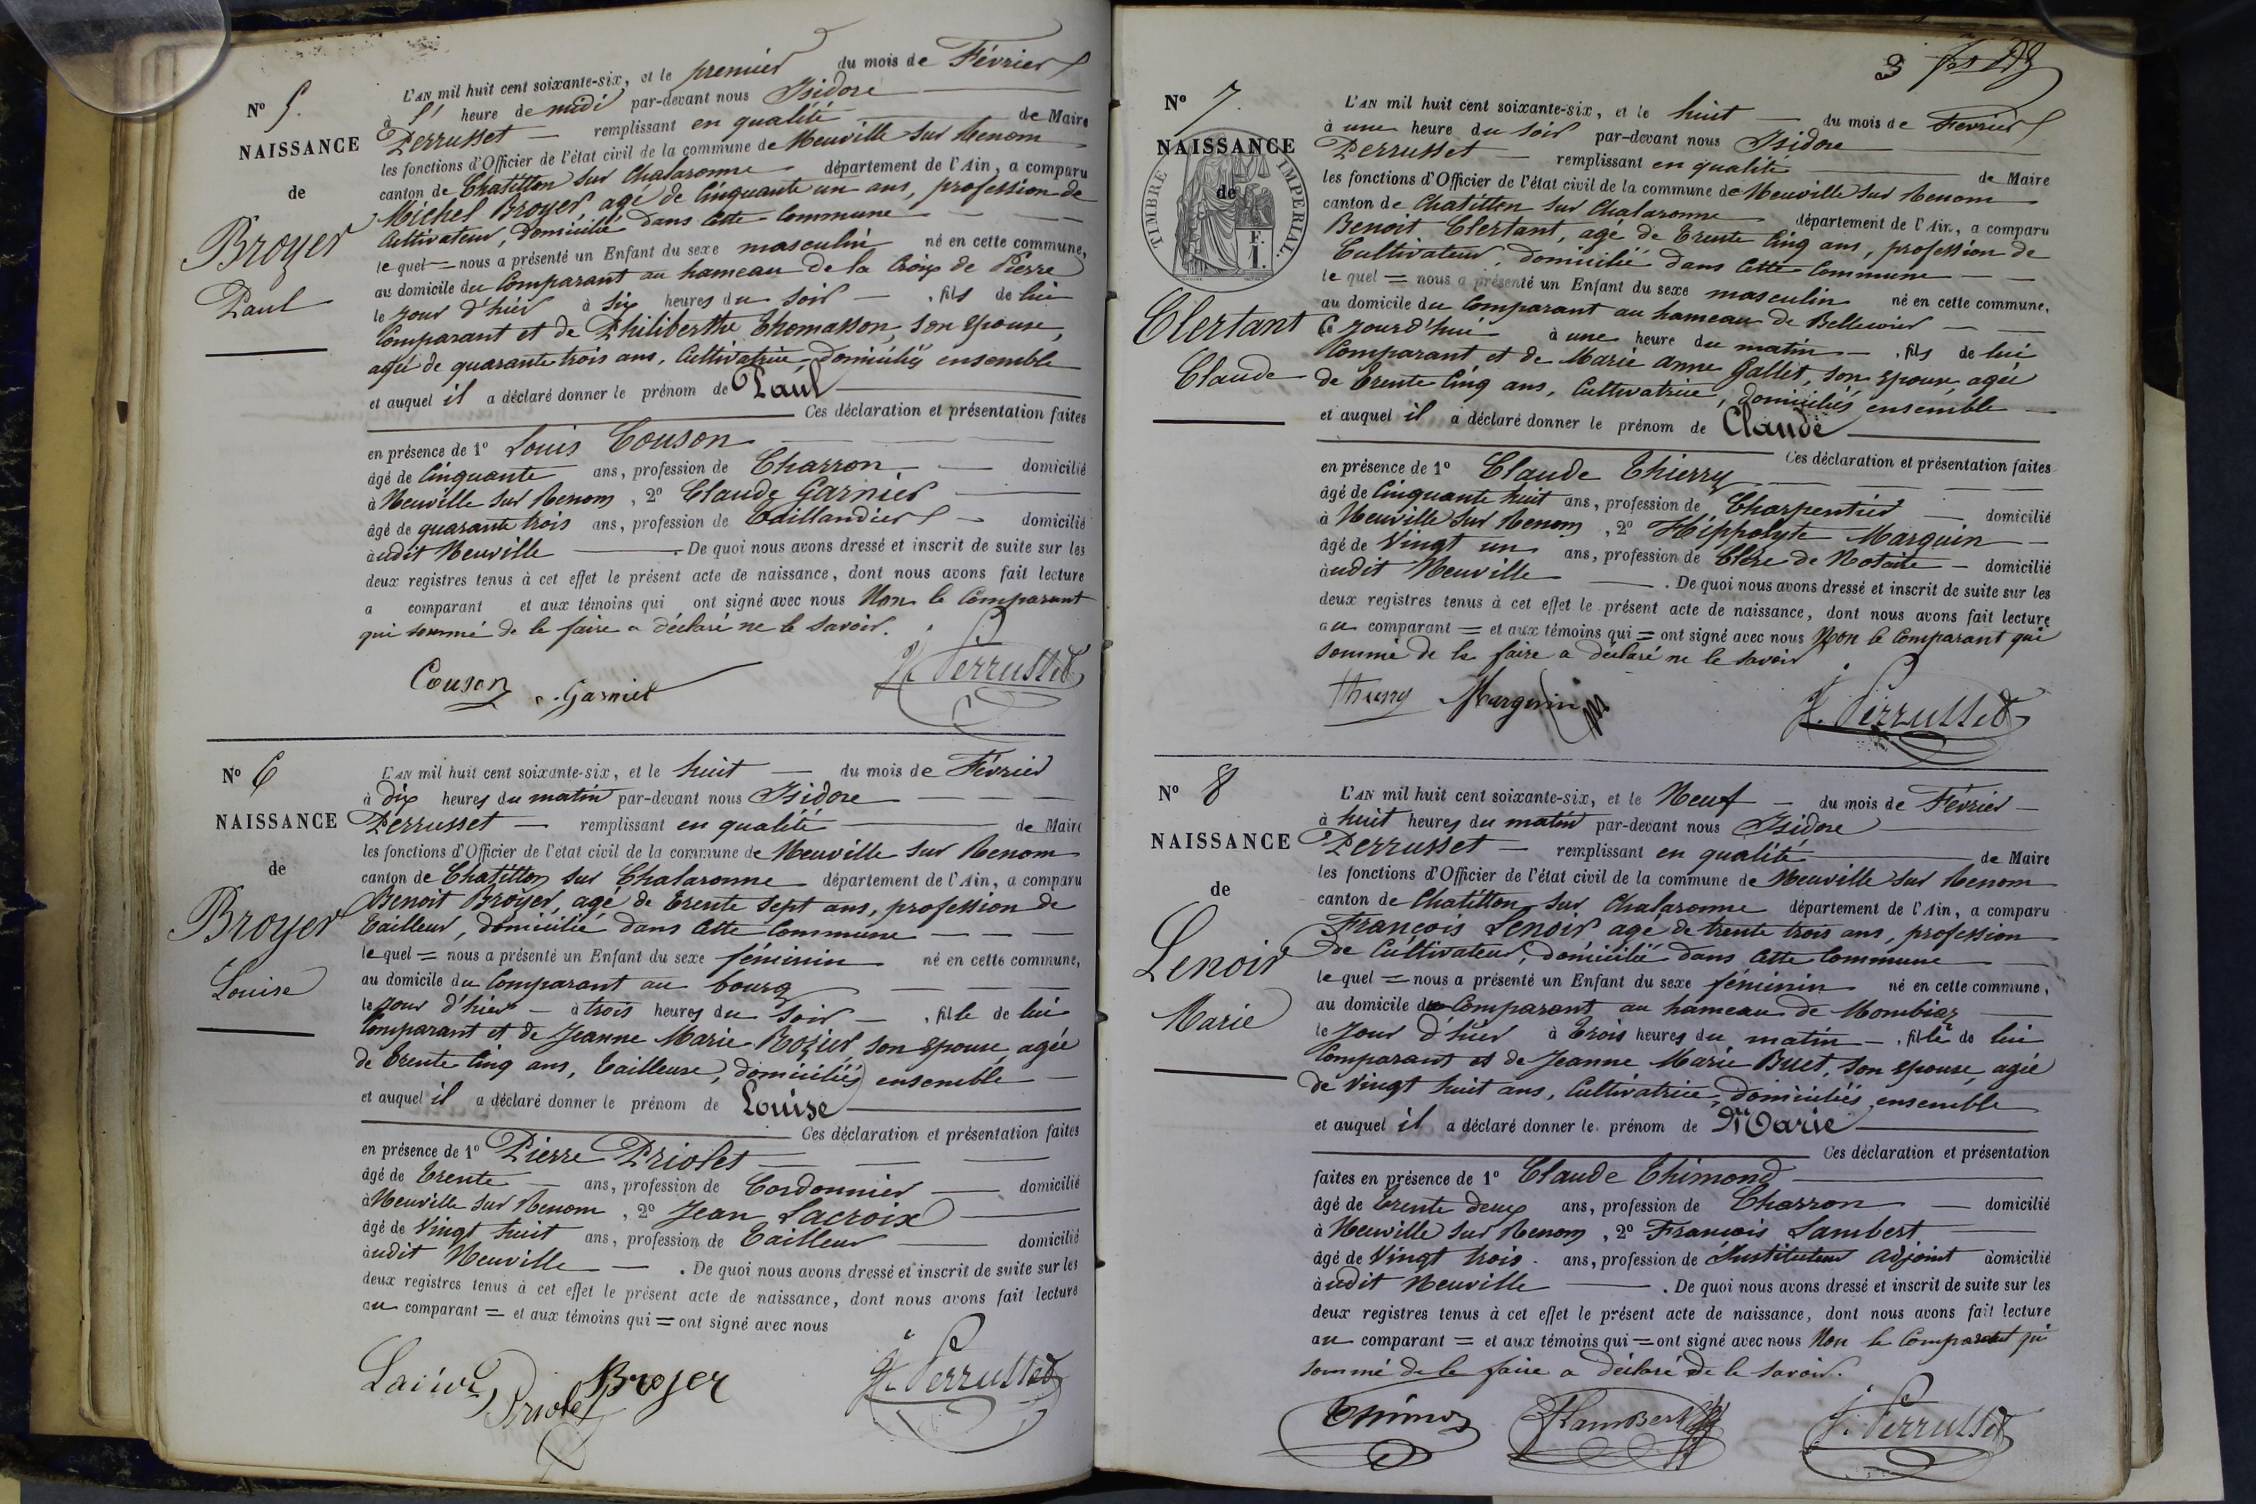 N° 5.
NAISSANCE
de
Broyer
Paul
L'AN mil huit cent soixante-six, et le premier du mois de Février
à 1 heure de midi par-devant nous Isidore
Perrusset remplissant en qualité de Maire
les fonctions d'Officier de l'état civil de la commune de Neuville sur Renom
canton de Chatillon sur Chalaronne département de l'Ain, a comparu
Michel Broyer agé de Cinquante un ans, profession de
Cultivateur, domicilié dans Cette Commune
lequel = nous a présenté un Enfant du sexe masculin né en cette commune,
au domicile du Comparant au hameau de la Croix de Pierre
le jour d'hier à Six heures du Soir , fils de lui
Comparant et de Philiberthe Thomasson, son Epouse,
agée de quarante trois ans, Cultivatrice, domiciliés ensemble
et auquel il a déclaré donner le prénom de Paul
Ces déclaration et présentation faites
en présence de 1° Louis Couson
âgé de Cinquante ans, profession de Charron, domicilié
à Neuville sur Renom, 2° Claude Garnier
âgé de quarante trois ans, profession de Taillandier domicilié
audit Neuville . De quoi nous avons dressé et inscrit de suite sur les
deux registres tenus à cet effet le présent acte de naissance, dont nous avons fait lecture
a comparant et aux témoins qui ont signé avec nous Non le Comparant
qui sommé de le faire a déclaré ne le savoir.
Couson Garnier Perrusset
N° 6
NAISSANCE
de
Broyer
Louise
L'AN mil huit cent soixante-six, et le huit du mois de Février
à dix heures du matin par-devant nous Isidore
Perrusset remplissant en qualité de Maire
les fonctions d'Officier de l'état civil de la commune de Neuville sur Renom
canton de Chatillon sur Chalaronne département de l'Ain, a comparu
Benoit Broyer, agé de Trente Sept ans, profession de
Tailleur, domicilié dans Cette Commune
lequel = nous a présenté un Enfant du sexe féminin né en cette commune,
au domicile du Comparant au bourg
le jour d'hier à trois heures du Soir , fille de lui
Comparant et de Jeanne Marie Rozier son Epouse, agée
de Trente Cinq ans, Tailleuse, domiciliés ensemble
et auquel il a déclaré donner le prénom de Louise
Ces déclaration et présentation faites
en présence de 1° Pierre Priolet
âgé de Trente ans, profession de Cordonnier domicilié
à Neuville sur Renom, 2° Jean Lacroix
âgé de Vingt huit ans, profession de Tailleur domicilié
audit Neuville . De quoi nous avons dressé et inscrit de suite sur les
deux registres tenus à cet effet le présent acte de naissance, dont nous avons fait lecture
au comparant = et aux témoins qui = ont signé avec nous
Priolet Broyer Perrusset
3
N° 7.
NAISSANCE
de
TIMBRE IMPERIAL.
F.
1.
Clertant
Claude
L'AN mil huit cent soixante-six, et le huit du mois de Février
à une heure du soir par-devant nous Isidore
Perrusset remplissant en qualité de Maire
les fonctions d'Officier de l'état civil de la commune de Neuville sur Renom
canton de Chatillon sur Chalaronne département de l'Ain, a comparu
Benoit Clertant, agé de Trente Cinq ans, profession de
Cultivateur, domicilié dans Cette Commune
lequel = nous a présenté un Enfant du sexe masculin né en cette commune,
au domicile du Comparant au hameau de
Ce jourd'hui à une heure du matin , fils de lui
Comparant et de Marie Anne Gallet, son Epouse, agée
de Trente Cinq ans, Cultivatrice, domiciliés ensemble
et auquel il a déclaré donner le prénom de Claude
Ces déclaration et présentation faites
en présence de 1° Claude Thierry
âgé de Cinquante huit ans, profession de Charpentier domicilié
à Neuville sur Renom, 2° Hippolyte Marguin
âgé de Vingt un ans, profession de Clerc de Notaire domicilié
audit Neuville . De quoi nous avons dressé et inscrit de suite sur les
deux registres tenus à cet effet le présent acte de naissance, dont nous avons fait lecture
au comparant = et aux témoins qui = ont signé avec nous Non le Comparant qui
sommé de le faire a déclaré ne le savoir
Thierry Marguin Perrusset
N° 8
NAISSANCE
de
Lenoir
Marie
L'AN mil huit cent soixante-six, et le Neuf du mois de Février
à huit heures du matin par-devant nous Isidore
Perrusset remplissant en qualité de Maire
les fonctions d'Officier de l'état civil de la commune de Neuville sur Renom
canton de Chatillon sur Chalaronne département de l'Ain, a comparu
François Lenoir agé de trente trois ans, profession
de Cultivateur, domicilié dans Cette Commune
lequel = nous a présenté un Enfant du sexe féminin né en cette commune,
au domicile du Comparant au hameau de
le jour d'hier à Trois heures du matin , fille de lui
Comparant et de Jeanne Marie Buet, son Epouse, agée
de Vingt huit ans, Cultivatrice, domiciliés ensemble
et auquel il a déclaré donner le prénom de Marie
Ces déclaration et présentation
faites en présence de 1° Claude Thimond
âgé de Trente deux ans, profession de Charron domicilié
à Neuville sur Renom, 2° Francois Lambert
âgé de Vingt trois ans, profession de Instituteur Adjoint domicilié
audit Neuville . De quoi nous avons dressé et inscrit de suite sur les
deux registres tenus à cet effet le présent acte de naissance, dont nous avons fait lecture
au comparant = et aux témoins qui = ont signé avec nous Non le Comparant qui
sommé de le faire a déclaré de le savoir.
Lambert Perrusset